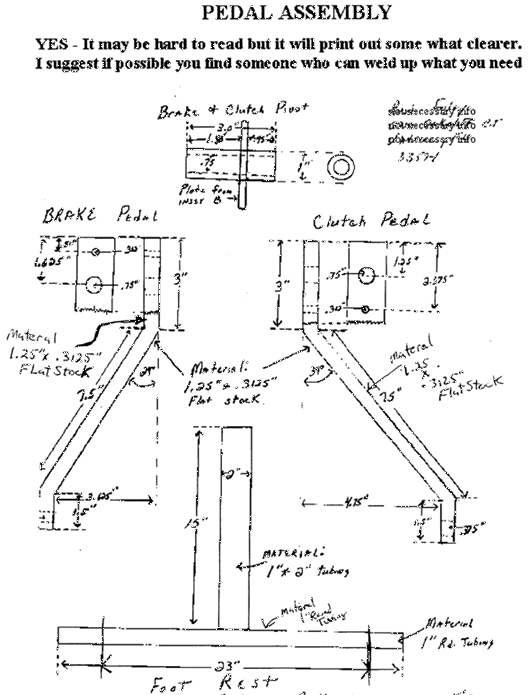 PEDAL ASSEMBLY
YES - It may be hard to read but it will print out some what clearer.
I suggest if possible you find someone who can weld up what you need
Brake & Clutch Pivot
3.0"
.75
1"
Plate from
inset B
33574
BRAKE Pedal
Clutch Pedal
1.625"
.30
.75"
3"
3"
.75"
.30
1.25"
2.375"
Material
1.25" x .3125"
Flat Stock
Material:
1.25" x .3125"
Flat stock.
Material
1.25
x
.3125"
Flat Stock
7.5"
29°
39°
7.5"
3.625"
1.5"
4.75"
1.5"
.375"
2"
15"
MATERIAL:
1" x 2" tubing
Material
1" Round
Tubing
Material
1" Rd. Tubing
23"
Foot Rest